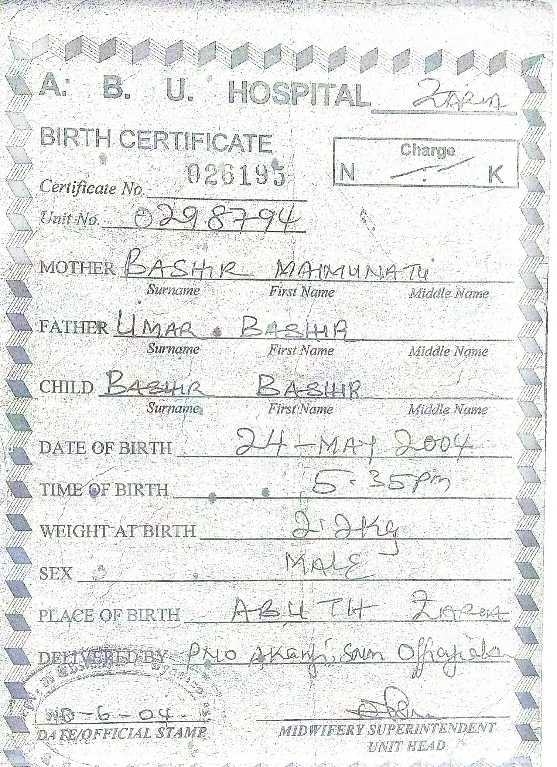 A. B. U. HOSPITAL ZARIA
BIRTH CERTIFICATE
Charge
N K
Certificate No. 026195
Unit No. 0298794
MOTHER BASHIR MAIMUNATU
Surname First Name Middle Name
FATHER UMAR BASHIR
Surname First Name Middle Name
CHILD BASHIR BASHIR
Surname First Name Middle Name
DATE OF BIRTH 24-MAY 2004
TIME OF BIRTH 5.35pm
WEIGHT AT BIRTH 2.2kg
SEX MALE
PLACE OF BIRTH ABUTH ZARIA
DELIVERED BY PNO Akanji,
-6-04
DATE/OFFICIAL STAMP
MIDWIFERY SUPERINTENDENT
UNIT HEAD